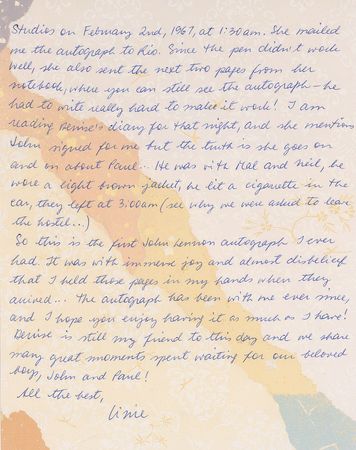 Studios on February 2nd, 1967, at 1:30am. She mailed
me the autograph to Rio. Since the pen didn't work
well, she also sent the next two pages from her
notebook, where you can still see the autograph - he
had to write really hard to make it work! I am
reading Denise's diary for that night, and she mentions
John signed for me but the truth is she goes on
and on about Paul... He was with Mal and Neil, he
wore a light brown jacket, he lit a cigarette in the
car, they left at 3:00am (see why we were asked to leave
the hostel...)
So this is the first John Lennon autograph I ever
had. It was with immense joy and almost disbelief
that I held those pages in my hands when they
arrived... The autograph has been with me ever since,
and I hope you enjoy having it as much as I have!
Denise is still my friend to this day and we share
many great moments spent waiting for our beloved
boys, John and Paul!
All the best,